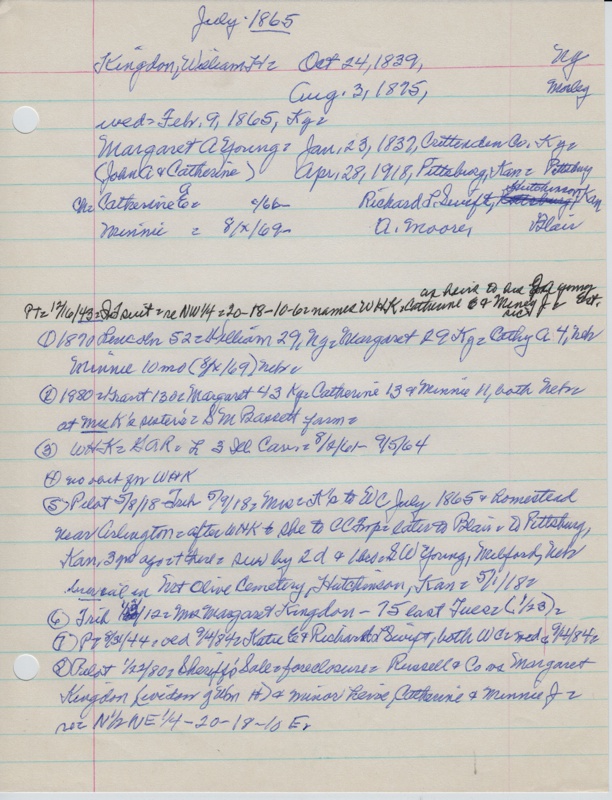 July - 1865
Kingdon, William H = Oct 24, 1839, Ng
Aug. 3, 1875,
wed = Feb. 9, 1865, Ky =
Margaret A Young = Jan. 23, 1837, Crittenden Co. Ky =
(John A & Catherine) Apr. 28, 1918, Pittsburg, Kan = Pittsburg
Ch = Catherine E = 9/66 Richard L Swift, Hutchinson, Kan
Minnie = 8/x/69 = A. Moore, Blair
as heirs to
Pt = 12/16/43 = suit = re NW 1/4 = 20-18-10-6 = names WHK, Catherine E & J = Est.
sic
① 1870 Lincoln 52 = William 29, Ng = Margaret 29 Ky = Cathy A 4, Neb
Minnie 10 mo (8/x/69) Neb =
② 1980 = Grant 130 = Margaret 43 Ky = Catherine 13 & Minnie 11, both Neb =
at Mrs K's sister's = S M Bassett farm =
③ WHK = GAR = L 3 Ill Cav. = 8/ /61 - 9/5/64
④ no obit for WHK
⑤ Pilot 5/8/18 Trib 5/9/18 = Mrs = K's to WC July 1865 & homestead
near Arlington = after WHK d she to CC Twp = later to Blair & to Pittsburg,
Kan, 3 = surv by 2 d & 1 bro = G W Young, Milford, Neb
burial in Mt Olive Cemetery, Hutchinson, Kan = 5/1/18 =
⑥ Trib /12 = Mrs Margaret Kingdon - 75 last Tues = (1/23) =
⑦ Katie E & Richard L Swift, both WC = wed = 9/4/84 =
⑧ Pilot 1/22/80 = Sheriff's Sale = foreclosure = Russell & Co vs Margaret
Kingdon (widow of Wm H) & minor heirs, Catherine & Minnie J =
re = N 1/2 NE 1/4 - 20-18-10 E